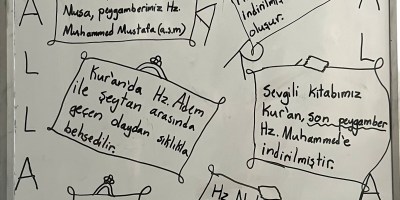 Nusa, peygamberimiz Hz.
Muhammed Mustafa (a.s.m)
indirilmiş
oluşur.
Kur'an'da Hz. Adem
ile şeytan arasında
geçen olaydan sıklıkla
bahsedilir.
Sevgili kitabımız
Kur'an, son peygamber
Hz. Muhammed'e
indirilmiştir.
A
L
L
A
A
L
L
A